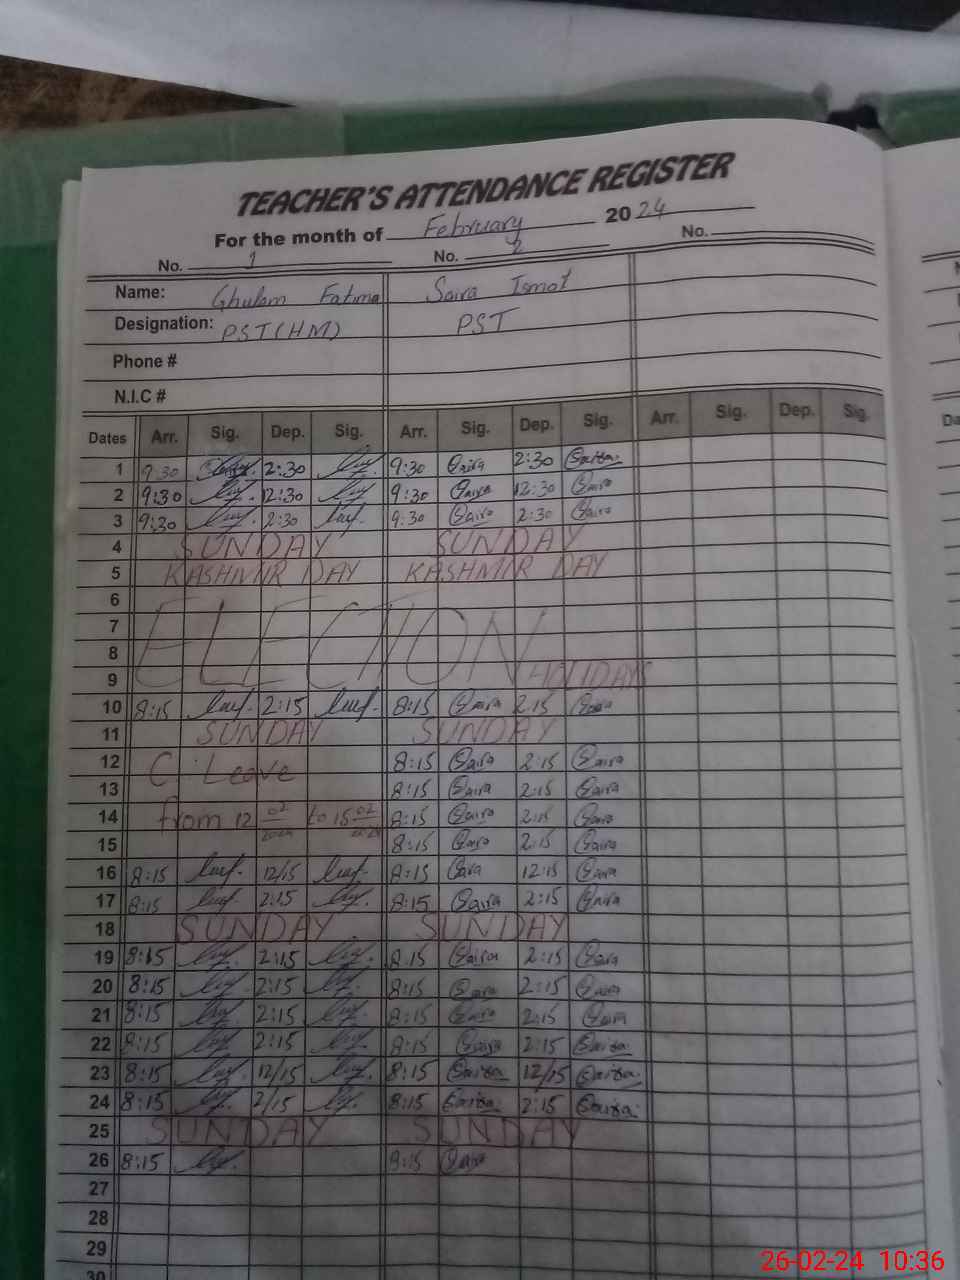 TEACHER'S ATTENDANCE REGISTER
For the month of February 2024
No. 1 No. 2 No.
Name: Ghulam Fatima Saira Ismat
Designation: PST(HM) PST
Phone #
N.I.C #
Dates Arr. Sig. Dep. Sig. Arr. Sig. Dep. Sig. Arr. Sig. Dep. Sig.
1 9:30 2:30 9:30 Saira 2:30 Saira
2 9:30 12:30 9:30 Saira 12:30 Saira
3 9:30 2:30 9:30 Saira 2:30 Saira
4 SUNDAY SUNDAY
5 KASHMIR DAY KASHMIR DAY
6
7
8 ELECTION
9 HOLIDAYS
10 8:15 2:15 8:15 Saira 2:15 Saira
11 SUNDAY SUNDAY
12 C Leave 8:15 Saira 2:15 Saira
13 8:15 Saira 2:15 Saira
14 from 12 02 2024 to 15 02 8:15 Saira 2:15 Saira
15 8:15 Saira 2:15 Saira
16 8:15 12/15 8:15 Saira 12:15 Saira
17 8:15 2:15 8:15 Saira 2:15 Saira
18 SUNDAY SUNDAY
19 8:15 2:15 8:15 Saira 2:15 Saira
20 8:15 2:15 8:15 Saira 2:15 Saira
21 8:15 2:15 8:15 Saira 2:15 Saira
22 8:15 2:15 8:15 Saira 2:15 Saira
23 8:15 12/15 8:15 Saira 12/15 Saira
24 8:15 2/15 8:15 Saira 2:15 Saira
25 SUNDAY SUNDAY
26 8:15 8:15 Saira
27
28
29
30
26-02-24 10:36